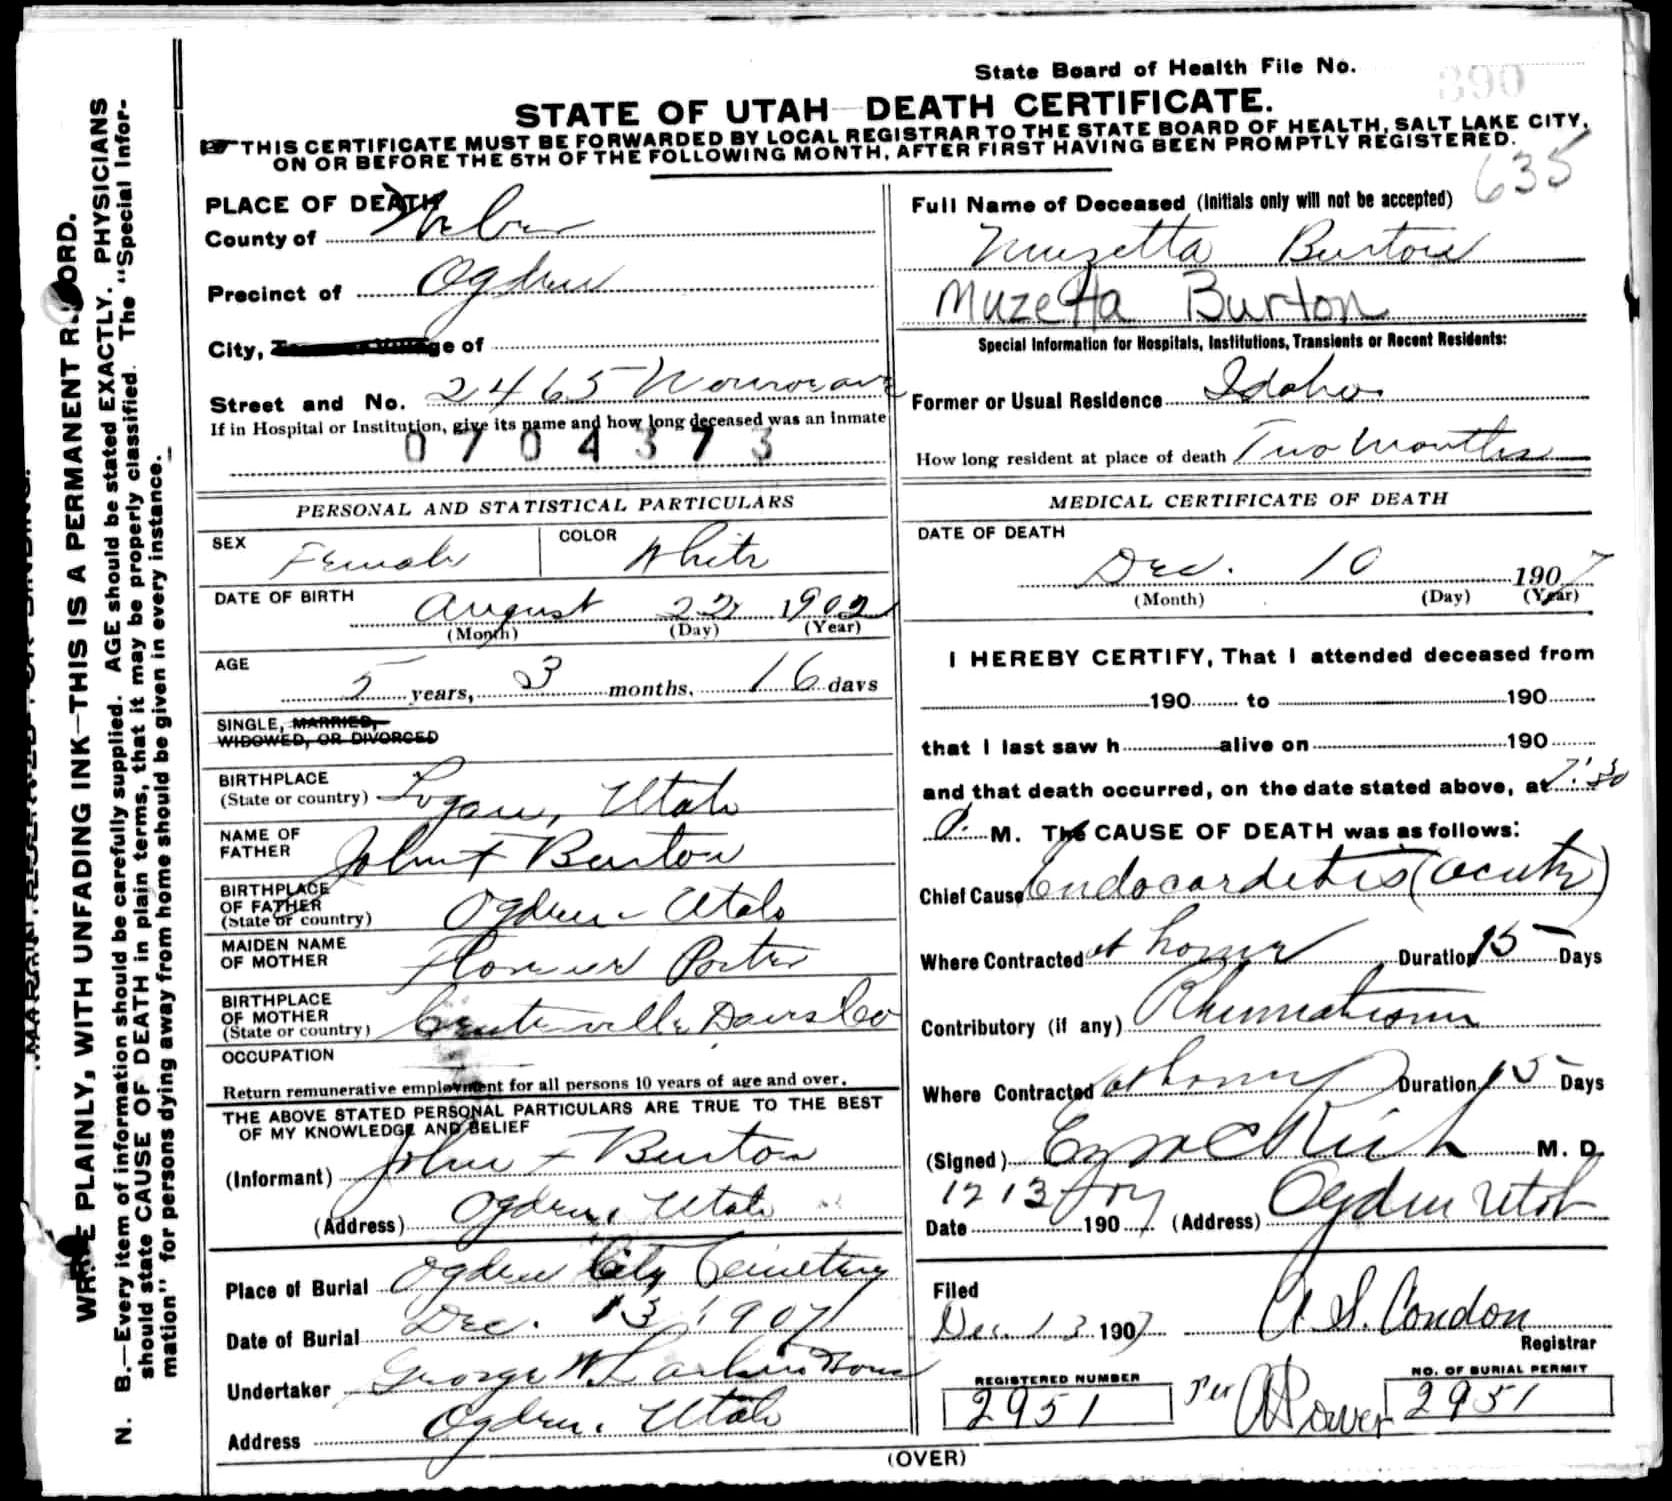 State Board of Health File No. 890
STATE OF UTAH—DEATH CERTIFICATE.
THIS CERTIFICATE MUST BE FORWARDED BY LOCAL REGISTRAR TO THE STATE BOARD OF HEALTH, SALT LAKE CITY,
ON OR BEFORE THE 5TH OF THE FOLLOWING MONTH, AFTER FIRST HAVING BEEN PROMPTLY REGISTERED.
635
PLACE OF DEATH
County of Weber
Precinct of Ogden
City, of
Street and No. 2465 Monroe ave
If in Hospital or Institution, give its name and how long deceased was an inmate
0704373
Full Name of Deceased (Initials only will not be accepted)
Muzetta Burton
Muzetta Burton
Special Information for Hospitals, Institutions, Transients or Recent Residents:
Former or Usual Residence Idaho
How long resident at place of death Two Months
PERSONAL AND STATISTICAL PARTICULARS
SEX Female COLOR White
DATE OF BIRTH August 22 1902
(Month) (Day) (Year)
AGE 5 years, 3 months, 16 days
SINGLE, MARRIED,
WIDOWED, OR DIVORCED
BIRTHPLACE
(State or country) Logan, Utah
NAME OF
FATHER John F Burton
BIRTHPLACE
OF FATHER
(State or country) Ogden Utah
MAIDEN NAME
OF MOTHER Florence Porter
BIRTHPLACE
OF MOTHER
(State or country) Centerville Davis Co
OCCUPATION
Return remunerative employment for all persons 10 years of age and over.
THE ABOVE STATED PERSONAL PARTICULARS ARE TRUE TO THE BEST
OF MY KNOWLEDGE AND BELIEF
(Informant) John F Burton
(Address) Ogden, Utah
Place of Burial Ogden City Cemetery
Date of Burial Dec. 13 1907
Undertaker George W Larkin Sons
Address Ogden, Utah
MEDICAL CERTIFICATE OF DEATH
DATE OF DEATH
Dec. 10 1907
(Month) (Day) (Year)
I HEREBY CERTIFY, That I attended deceased from
190 to 190
that I last saw h alive on 190
and that death occurred, on the date stated above, at 7:30
M. The CAUSE OF DEATH was as follows:
Chief Cause Endocarditis (acute)
Where Contracted at home Duration 15 Days
Contributory (if any) Rheumatism
Where Contracted at home Duration 15 Days
(Signed) Rich M. D.
12 13 07
Date 190 (Address) Ogden Utah
Filed
Dec. 13 1907 A. S. Condon
Registrar
REGISTERED NUMBER
2951
Per A Power
NO. OF BURIAL PERMIT
2951
(OVER)
WRITE PLAINLY, WITH UNFADING INK—THIS IS A PERMANENT RECORD.
N. B.—Every item of information should be carefully supplied. AGE should be stated EXACTLY. PHYSICIANS
should state CAUSE OF DEATH in plain terms, that it may be properly classified. The "Special Infor-
mation" for persons dying away from home should be given in every instance.